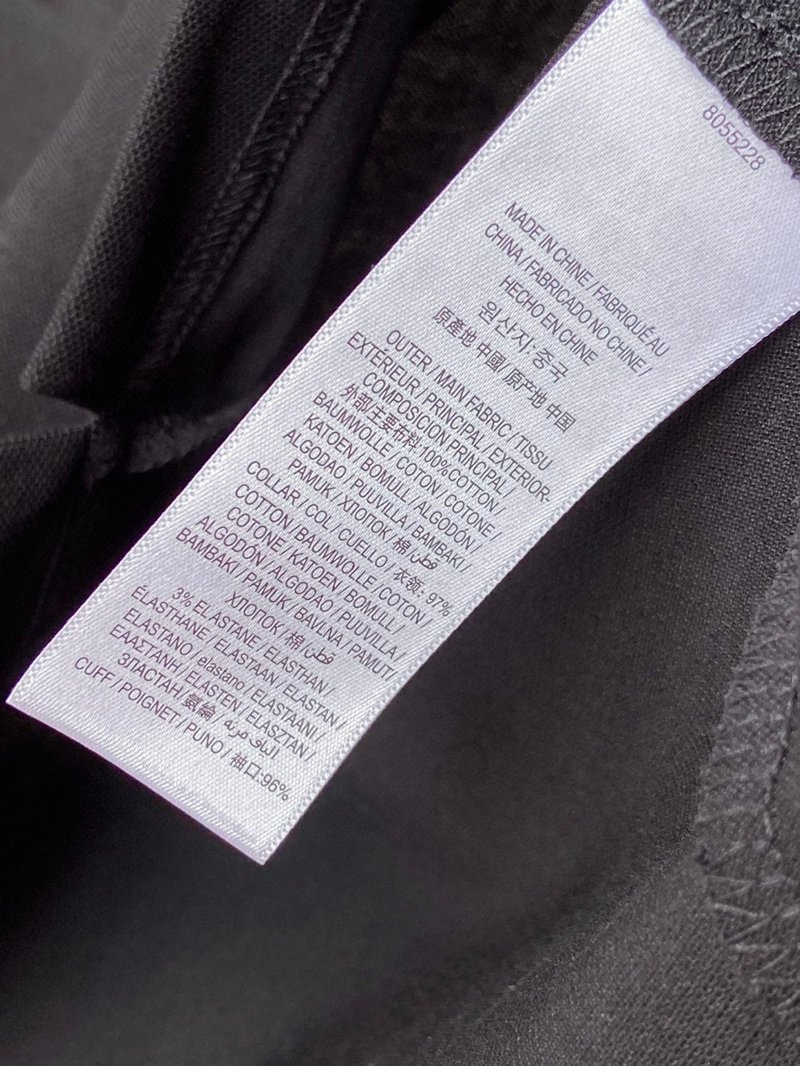 8055228
MADE IN CHINE / FABRIQUÉ AU
CHINA / FABRICADO NO CHINE /
HECHO EN CHINE
원산지: 중국
原產地 中國 / 原产地 中国
OUTER / MAIN FABRIC / TISSU
EXTERIEUR / PRINCIPAL / EXTERIOR-
COMPOSICION PRINCIPAL /
外部/主要布料 100% COTTON /
BAUMWOLLE / COTON / COTONE /
KATOEN / BOMULL / ALGODÓN /
ALGODAO / PUUVILLA / BAMBAKI /
PAMUK / ХЛОПОК / 棉 / قطن
COLLAR / COL / CUELLO / 衣領: 97%
COTTON / BAUMWOLLE / COTON /
COTONE / KATOEN / BOMULL /
ALGODÓN / ALGODAO / PUUVILLA /
BAMBAKI / PAMUK / BAVLNA / PAMUT/
ХЛОПОК / 棉 / قطن
3% ELASTANE / ELASTHAN /
ÉLASTHANE / ELASTAAN / ELASTAN /
ELASTANO / elastano / ELASTAANI /
ΕΛΑΣΤΑΝΗ / ELASTEN / ELASZTAN /
ЭЛАСТАН / 氨綸 / الياف مرنة
CUFF / POIGNET / PUNO / 袖口:96%